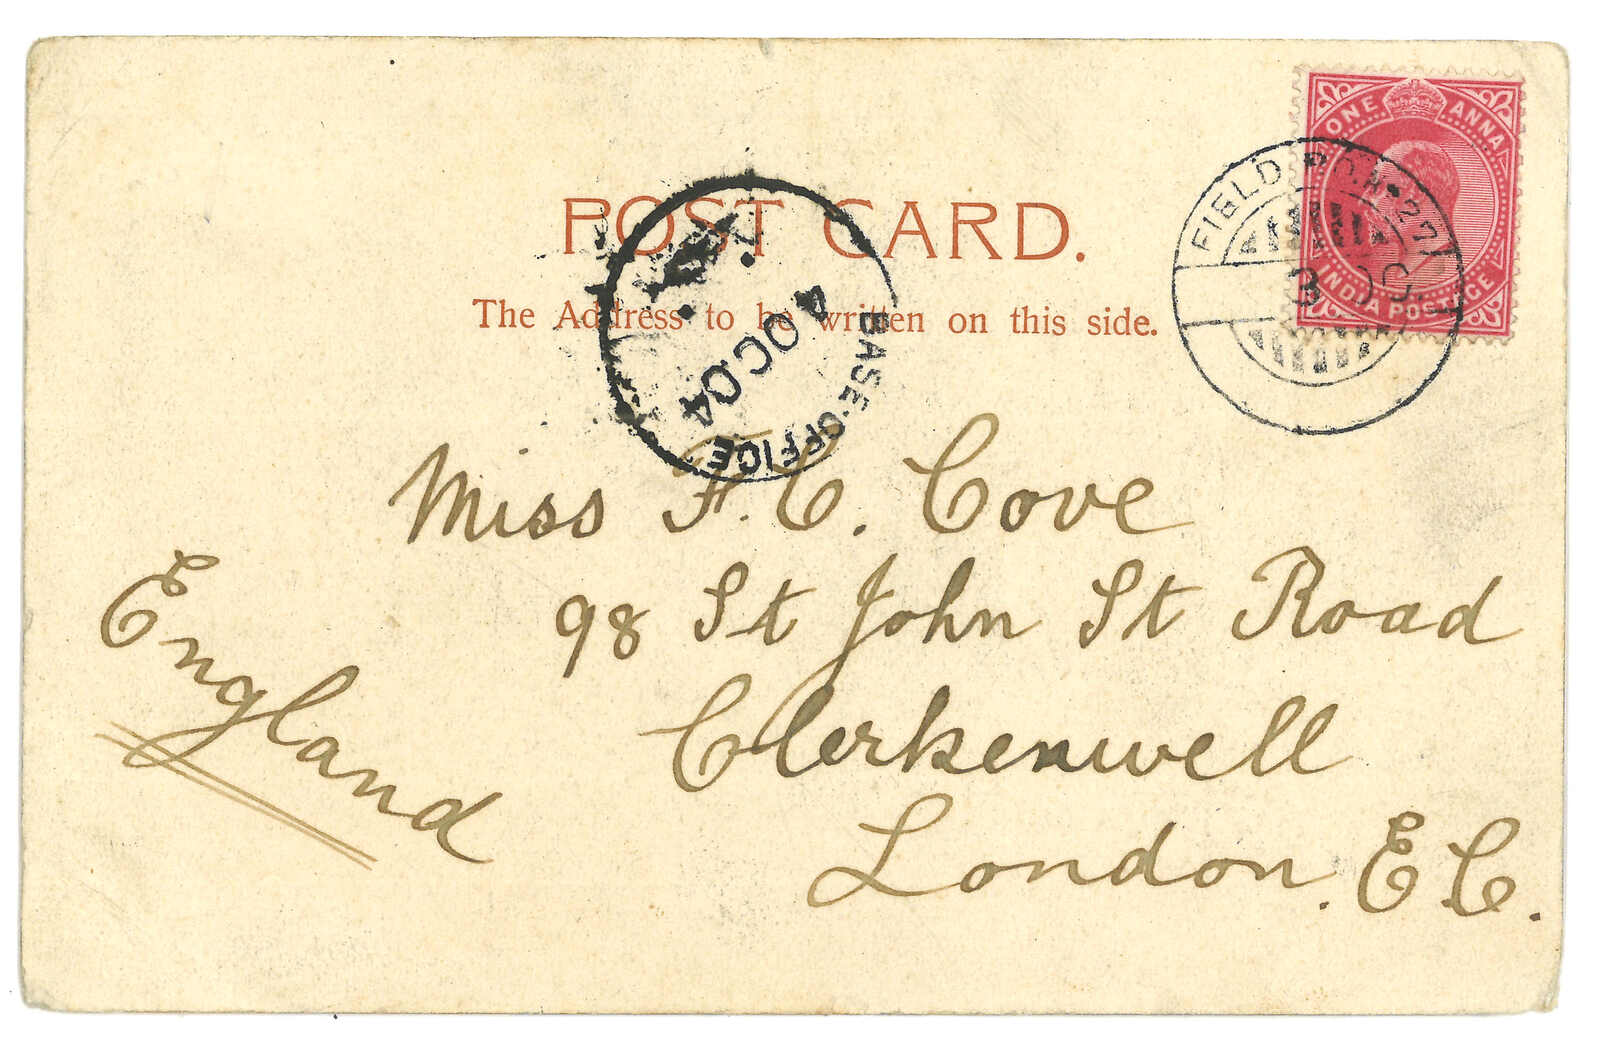 ONE ANNA
INDIA POSTAGE
FIELD P.O. No 27
3 OC.
POST CARD.
The Address to be written on this side.
BASE OFFICE
4 OC.04
Miss F. C. Cove
98 St John St Road
Clerkenwell
London. E.C.
England